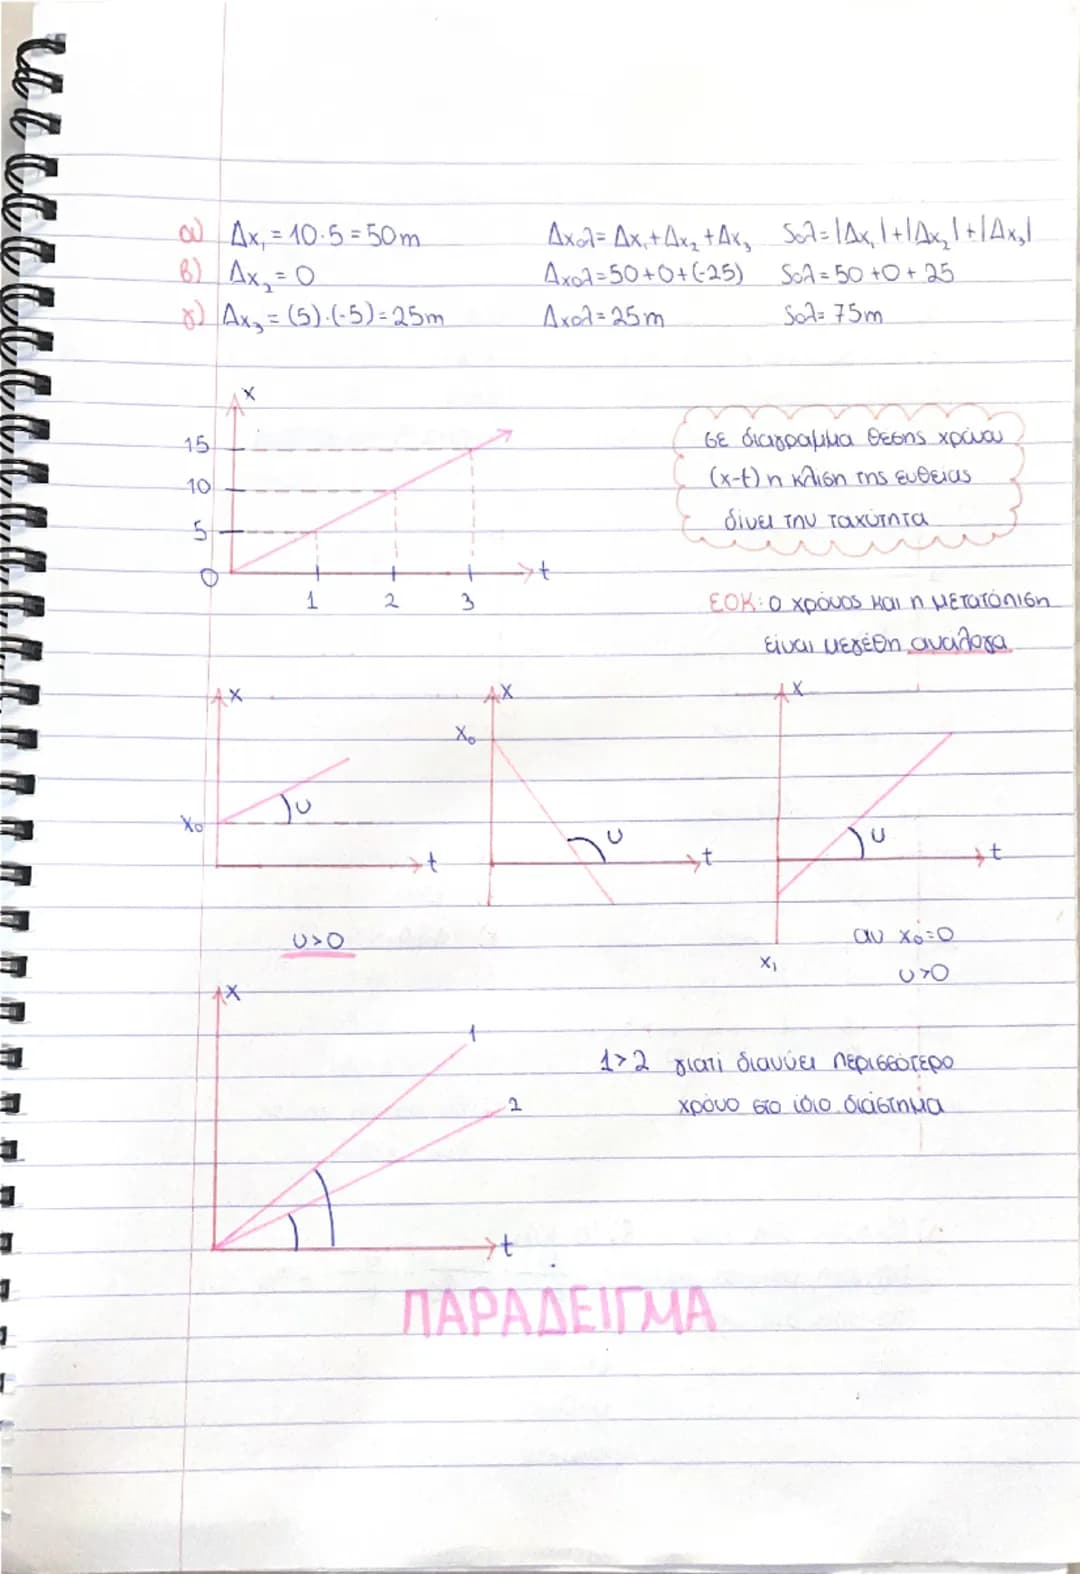 α) Δx₁ = 10·5 = 50m
β) Δx₂ = 0
γ) Δx₃ = (5)·(-5) = 25m
Δxολ = Δx₁ + Δx₂ + Δx₃
Δxολ = 50 + 0 + (-25)
Δxολ = 25m
Sολ = |Δx₁| + |Δx₂| + |Δx₃|
Sολ = 50 + 0 + 25
Sολ = 75m
x
15
10
5
0
1 2 3
t
σε διαγραμμα θεσης χρονου
(x-t) η κλιση της ευθειας
δινει την ταχύτητα
ΕΟΚ: Ο χρόνος και η μετατόπιση
είναι μεγέθη αναλογα
x
x₀
υ
t
υ>0
x
x₀
υ
t
x
υ
t
x₁
αν x₀=0
υ>0
x
1
2
t
1>2 γιατί διανύει περισσότερο
χρόνο στο ίδιο διάστημα
ΠΑΡΑΔΕΙΓΜΑ